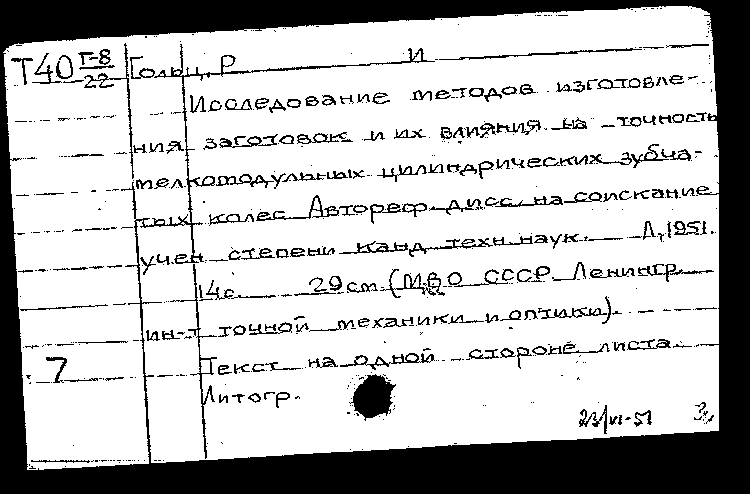 Т40 Г-8/22 Гольц, Р И
Исследование методов изготовле-
ния заготовок и их влияния на точность
мелкомодульных цилиндрических зубча-
тых колес Автореф. дисс. на соискание
учен степени канд техн.наук. Л, 1951.
14с. 29см (МВО СССР Ленингр.
ин-т точной механики и оптики).
7 Текст на одной стороне листа.
Литогр.
23/VI-51